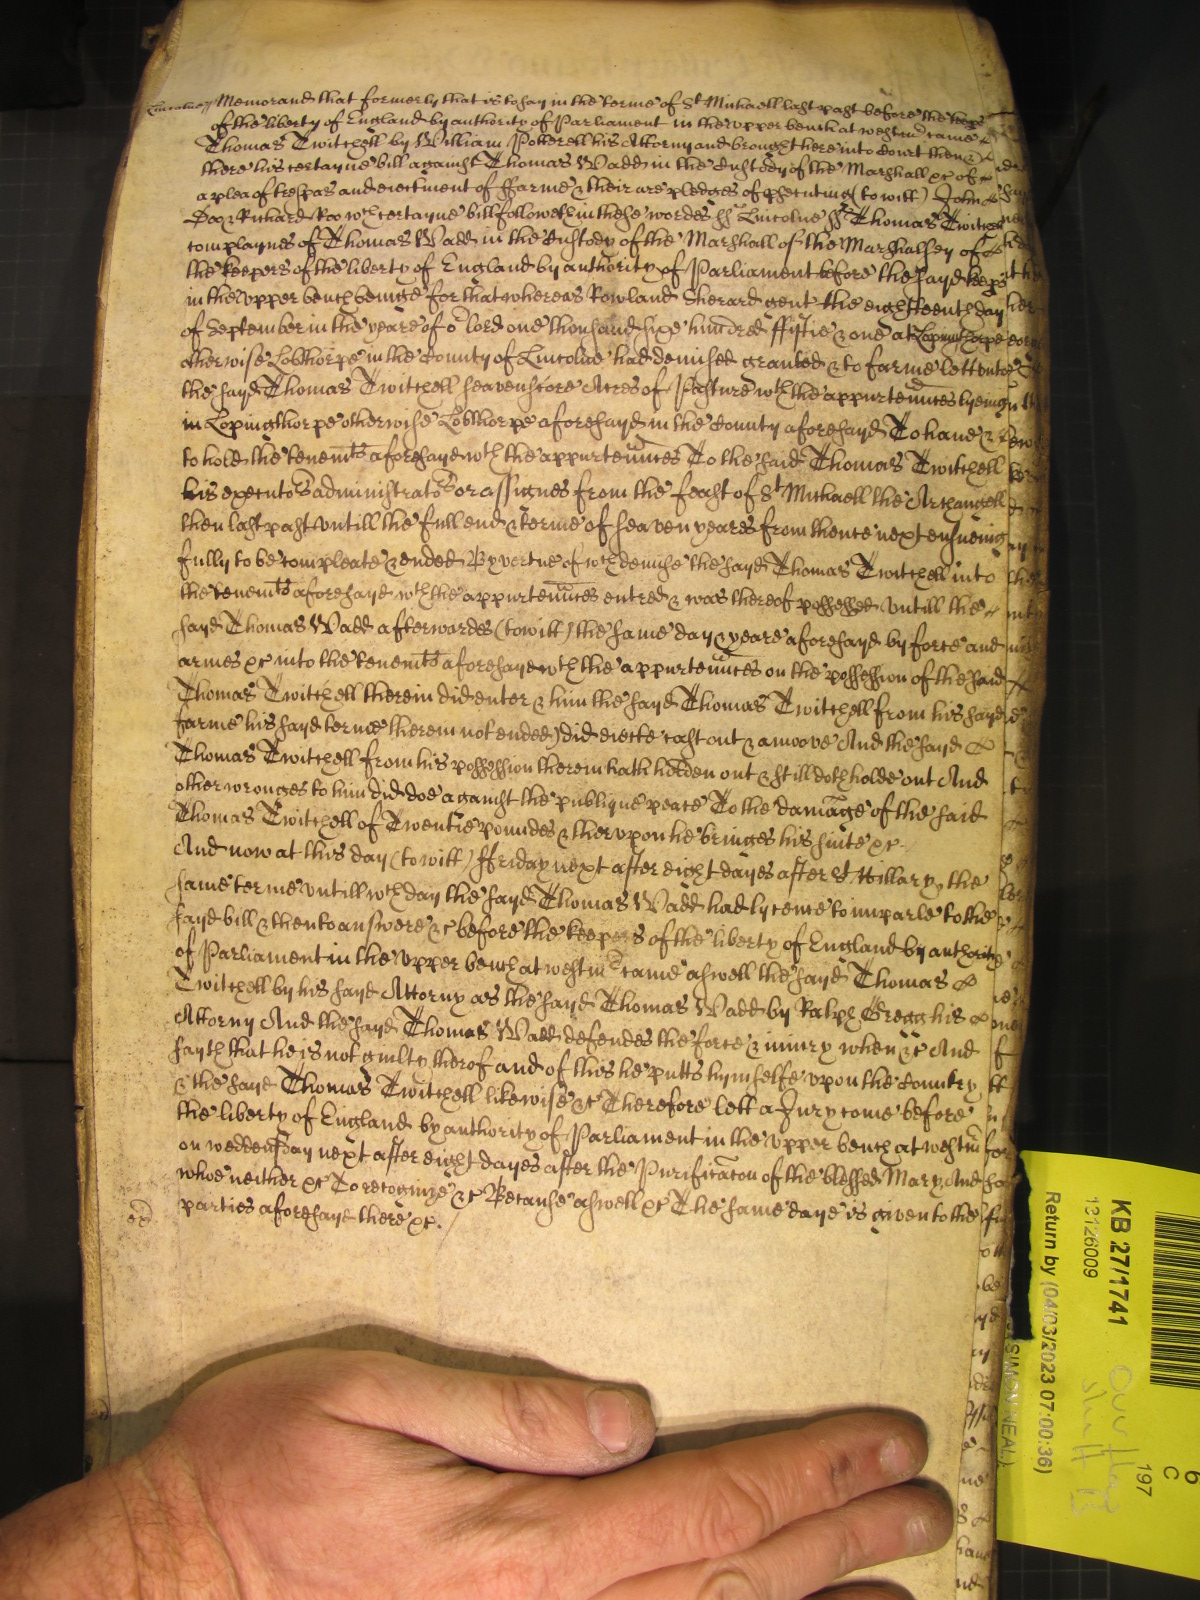 Lincolne ss Memorand that formerly that is to say in the terme of St Michaell last past before the keeps
of the liberty of England by authority of Parliament in the upper bench at westmr came
Thomas Twitchell by William Potterell his Attorny and brought here into Court then &
there his certayne bill against Thomas Wadd in the Custody of the Marshall &c of
a plea of trespas and eiectment of ffarme & their are pledges of psecuting (to witt) John
Doo & Richard Roo wch certayne bill followeth in these wordes ss Lincolne ss Thomas Twitchell
complaynes of Thomas Wadd in the Custody of the Marshall of the Marshalsey of
the keepers of the liberty of England by authority of Parliament before the sayd keeps
in the upper bench beinge for that whereas Rowland Sherard gent the eighteenth day
of September in the yeare of or lord one thousand sixe hundred ffiftie & one at Lopingthorpe
otherwise Lobthorpe in the County of Lincolne had demised granted & to farme lett unto
the sayd Thomas Twitchell seaven score Acres of Pasture wth the appurtenncs lyeinge
in Lopingthorpe otherwise Lobthorpe aforesayd in the County aforesayd To have &
to hold the tenemts aforesayd wth the appurtennces To the said Thomas Twitchell
his executors administrators or assignes from the feast of St Michaell the Archangell
then last past untill the full end & terme of seaven yeares from thence next ensueing
fully to be compleate & ended By vertue of wch demise the sayd Thomas Twitchell into
the tenemts aforesayd wth the appurtennces entred & was thereof possessed untill the
sayd Thomas Wadd afterwardes (to witt) the same day & yeare aforesayd by force and
armes &c into the tenemts aforesayd wth the appurtennces on the possession of the said
Thomas Twitchell therein did enter & him the sayd Thomas Twitchell from his sayd
farme his sayd terme therein not ended) did eiecte cast out & amoove And the sayd
Thomas Twitchell from his possession therein hath holden out & still doth holde out And
other wronges to him did doe against the publique peace To the damage of the said
Thomas Twitchell of Twentie poundes & therupon he bringes his suite &c.
And now at this day (to witt) ffriday next after eight dayes after St Hillary the
same terme untill wch day the sayd Thomas Wadd had lycence to imparle to the
sayd bill & then to answere &c before the keepers of the liberty of England by authority
of Parliament in the upper bench at westmr came aswell the sayd Thomas
Twitchell by his sayd Attorny as the sayd Thomas Wadd by Ralph Gregg his
Attorny And the sayd Thomas Wadd defendes the force & iniury when &c And
sayth that he is not guilty therof and of this he putts hymselfe upon the Country
& the sayd Thomas Twitchell likewise &c Therefore lett a Jury come before
the liberty of England by authority of Parliament in the upper bench at westmr
on weddensday next after eight dayes after the Purificacon of the blessed Mary And
whoe neither &c To recognize &c Because aswell &c The same daye is given to the
parties aforesayd there &c.
KB 27/1741
13126009
Return by (04/03/2023 07:00:36)
SIMON NEAL)
6
C
197